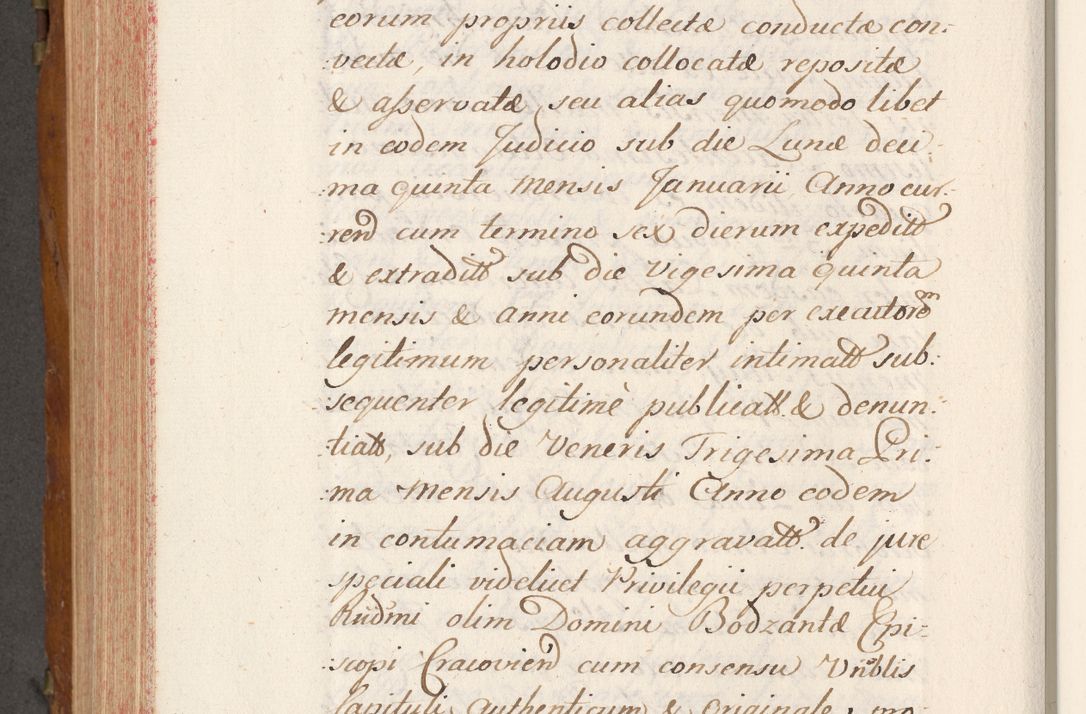 eorum propriis collectæ conductæ con:
vectæ, in holodio collocatæ repositæ
& aßervatæ seu alias quomodo libet
in eodem Judicio sub die Lunæ deci:
:ma quinta Mensis Januarii Anno cur:
:rend cum termino sex dierum expeditt
& extraditt sub die Vigesima quinta
mensis & anni eorundem per executorem
legitimum personaliter intimatt sub:
:sequenter legitimè publicatt & denun:
:tiatt, sub die Veneris Trigesima Pri:
:ma Mensis Augusti Anno eodem
in contumaciam aggravatt de jure
speciali videlicet Privilegii perpetui
Rndmi olim Domini Bodzantæ Epi:
:scopi Cracovien cum consensu Vnblis
Capituli Authenticum & Originale,